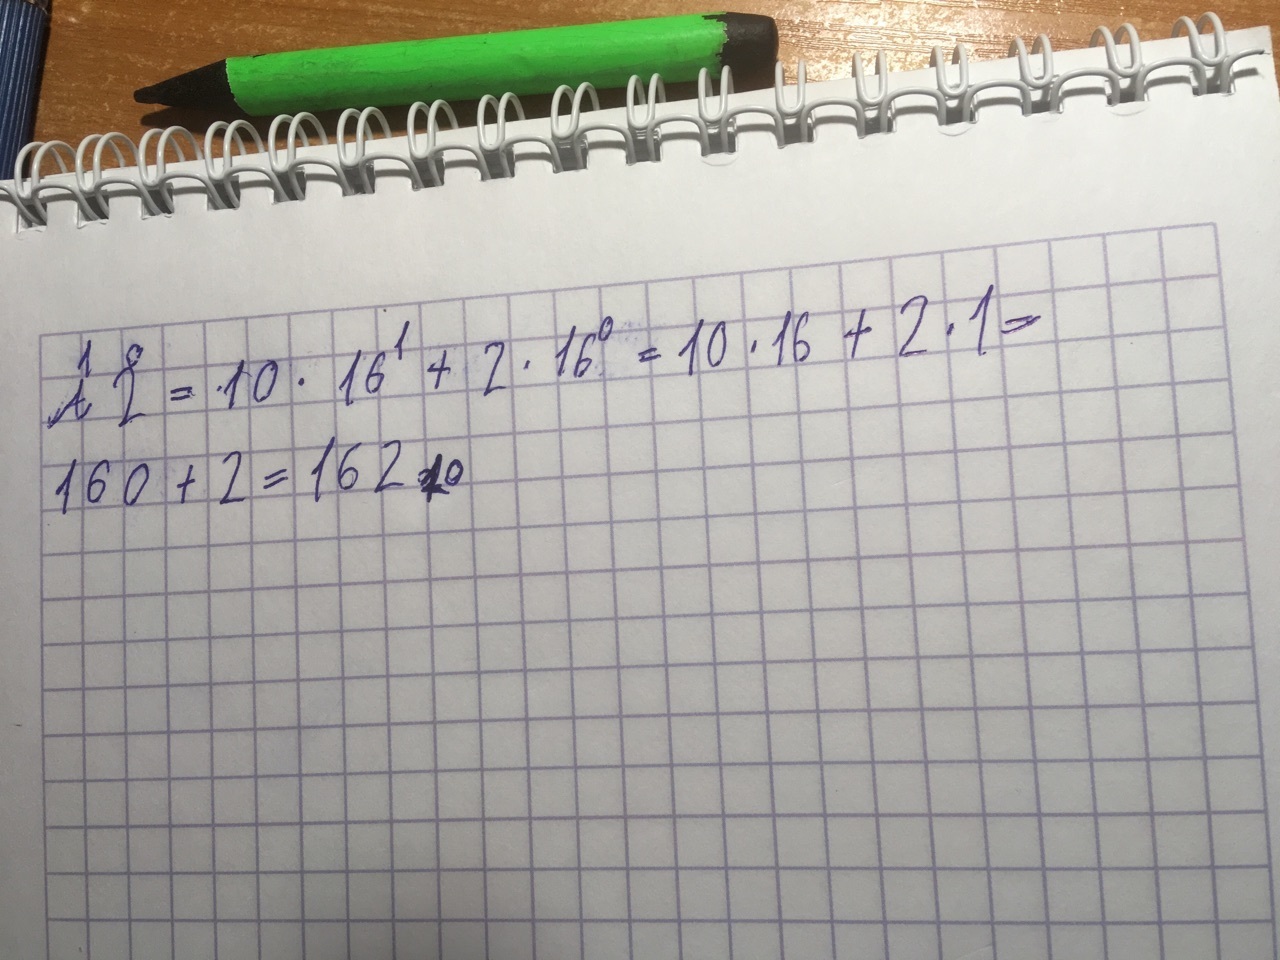 1 0
A 2 = 10 · 16¹ + 2 · 16⁰ = 10 · 16 + 2 · 1 =
160 + 2 = 162₁₀